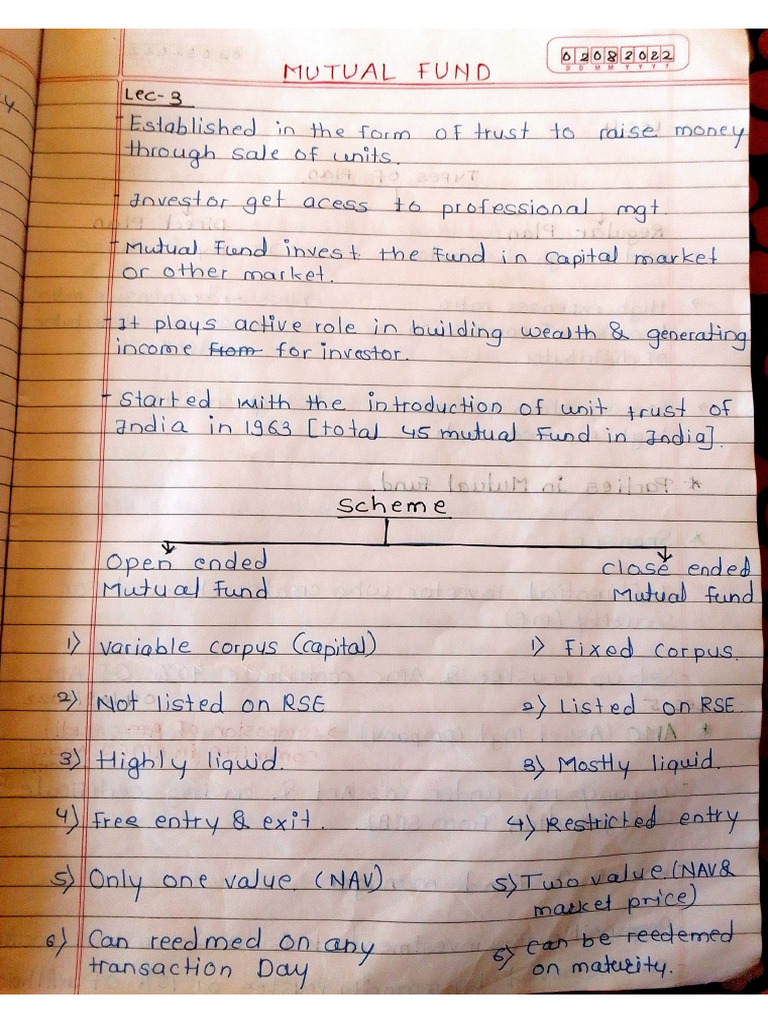 02082022
D D M M Y Y Y Y
MUTUAL FUND
Lec-3
- Established in the form of trust to raise money
through sale of units.
- Investor get acess to professional mgt.
- Mutual Fund invest the Fund in capital market
or other market.
- It plays active role in building wealth & generating
income from for investor.
- Started with the introduction of unit trust of
India in 1963 [total 45 mutual Fund in India].
Scheme
Open ended
Mutual Fund
1) variable corpus (capital)
2) Not listed on RSE
3) Highly liquid.
4) Free entry & exit.
5) Only one value. (NAV)
6) Can reedmed on any
transaction Day
close ended
Mutual fund
1) Fixed corpus.
2) Listed on RSE.
3) Mostly liquid.
4) Restricted entry
5) Two value. (NAV &
market price)
6) can be reedemed
on maturity.